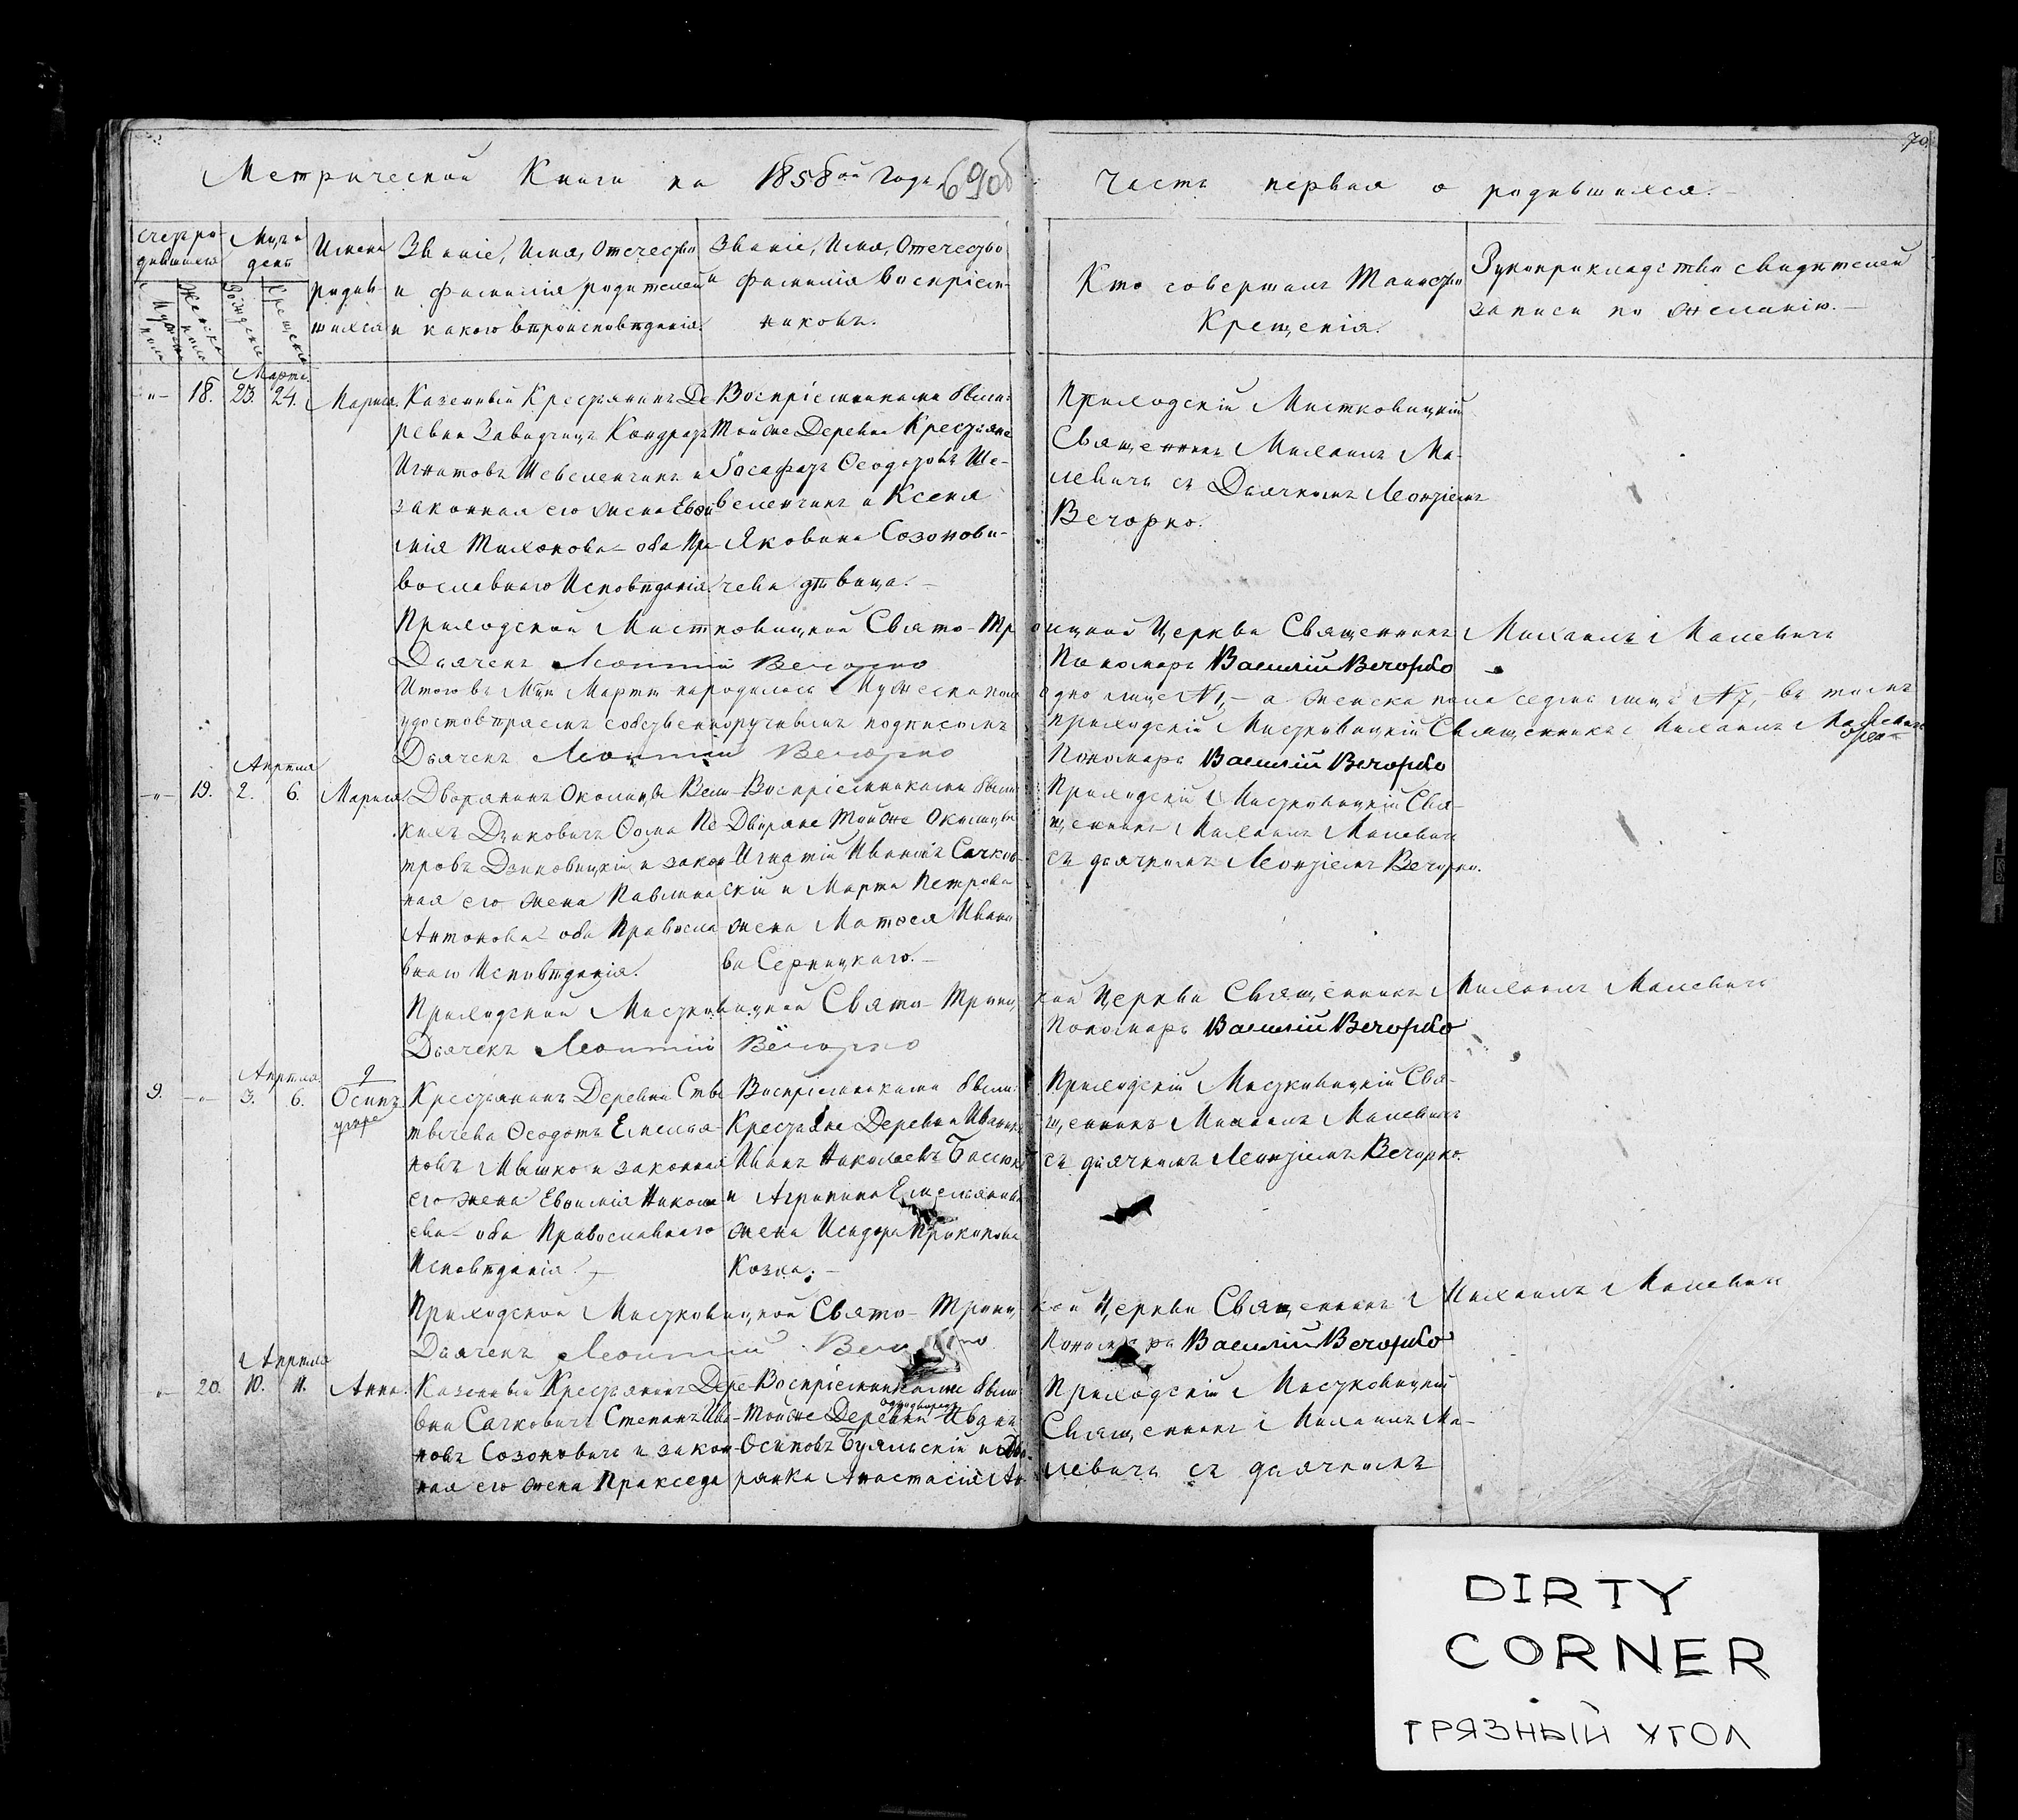 Метрической Книги на 1858ой Годъ 69об
Часть первая о родившихся.
70
Счетъ родившихся
Мужеска пола
Женска пола
Мѣсяцъ и день
Рожденія
Крещенія
Имена
родив-
шихся
Званіе, Имя, Отечество
и фамилія родителей
и какого вѣроисповѣданія.
Званіе, Имя, Отечество
и фамилія воспріем-
никовъ.
Кто совершалъ Таинство
Крещенія.
Рукоприкладство свидѣтелей
записи по желанію.
Марта
-"- 18. 23. 24. Марія
Казенный Крестьянинъ Де
ревни Завидчицъ Кондратъ
Игнатовъ Шевеленчикъ и
законная его жена Евѳи-
мія Тихонова - оба Пра-
вославнаго Исповѣданія.
Воспріемниками были:
Той же Деревни Крестьяне
Іосафатъ Ѳеодоровъ Ше-
веленчикъ и Ксенія
Яковина Созонови-
чева дѣвица.
Приходскій Мистковицкій
Священникъ Михаилъ Ма-
левичъ съ Дьячкомъ Леонтіемъ
Вечорко.
Приходской Мистковицкой Свято-Троицкой Церкви Священникъ Михаилъ Малевичъ
Дьячекъ Леонтій Вечорко Пономарь Василій Вечорко
Итого въ М-цѣ Мартѣ народилось Мужеска пола одно лице №1, - а женска пола седмь лицъ №7, - въ томъ
удостовѣряемъ собственноручнымъ подписомъ Приходскій Мистковицкій Священникъ Михаилъ Малевичъ
Дьячекъ Леонтій Вечорко Пономарь Василій Вечорко
Апрѣля
-"- 19. 2. 6. Марія
Дворянинъ Околицы Вели-
кихъ Дзиковичъ Ѳома Пе
тровъ Дзиковицкій и закон
ная его жена Павлина
Антонова - оба Правосла
внаго Исповѣданія.
Воспріемниками были
Дворяне Той же Околицы
Игнатій Ивановъ Сачков-
скій и Марта Петрова
жена Матѳея Ивано
ва Серницкаго.
Приходскій Мистковицкій Свя-
щенникъ Михаилъ Малевичъ
съ дьячкомъ Леонтіемъ Вечорко.
Приходской Мистковицкой Свято-Троицкой Церкви Священникъ Михаилъ Малевичъ
Дьячекъ Леонтій Вечорко Пономарь Василій Вечорко
Апрѣля
9. -"- 3. 6. Осипъ
умре
Крестьянинъ Деревни Ств
тычева Ѳеодотъ Емелья-
новъ Мышко и законная
его жена Евѳимія Никола
ева - оба Православнаго
Исповѣданія.
Воспріемниками были:
Крестьяне Деревни
Иванъ Николаевъ
и Агрипина Емельянова
жена Исидора Прокопова
Козла. -
Приходскій Мистковицкій Свя-
щенникъ Михаилъ Малевичъ
съ дьячкомъ Леонтіемъ Вечорко.
Приходской Мистковицкой Свято-Троицкой Церкви Священникъ Михаилъ Малевичъ
Дьячекъ Леонтій Вечорко Пономарь Василій Вечорко
Апрѣля
-"- 20. 10. 11. Анна.
Казенный Крестьянинъ Дере-
вни Сачковичъ Степанъ Ива-
новъ Созоновичъ и закон-
ная его жена Пракседа
Воспріемниками были
Той же Деревни однодворецъ Иванъ
Осиповъ Буяльскій и Дво-
рянка Анастасія Ан
Приходскій Мистковицкій
Священникъ Михаилъ Ма-
левичъ съ дьячкомъ
DIRTY
CORNER
ГРЯЗНЫЙ УГОЛ